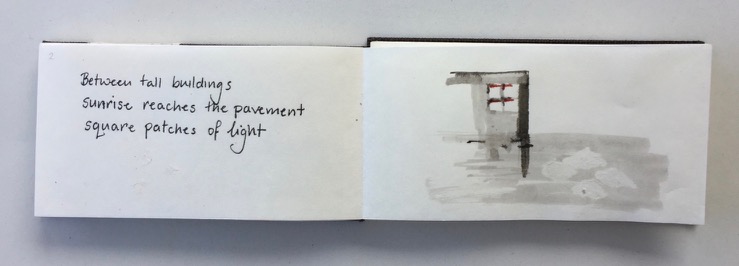 Between tall buildings
sunrise reaches the pavement
square patches of light